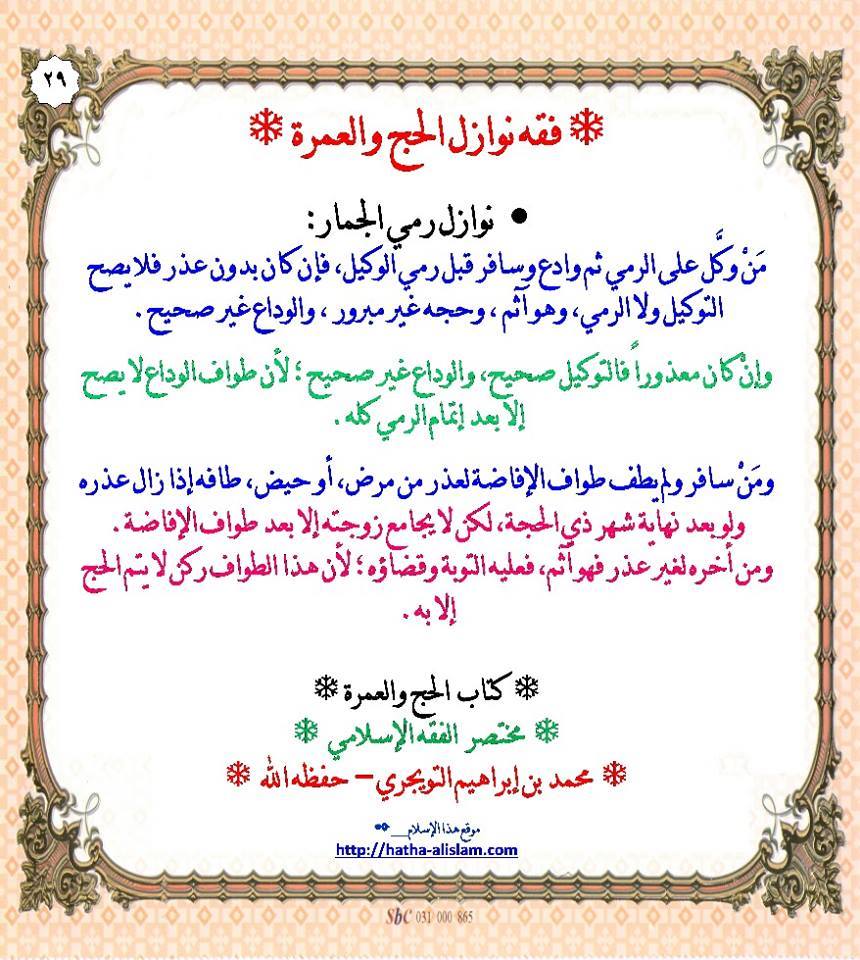 ٢٩
❄ فقه نوازل الحج والعمرة ❄
• نوازل رمي الجمار:
مَنْ وكَّل على الرمي ثم وادع وسافر قبل رمي الوكيل، فإن كان بدون عذر فلا يصح
التوكيل ولا الرمي، وهو آثم، وحجه غير مبرور، والوداع غير صحيح.
وإنْ كان معذوراً فالتوكيل صحيح، والوداع غير صحيح؛ لأن طواف الوداع لا يصح
إلا بعد إتمام الرمي كله.
ومَنْ سافر ولم يطف طواف الإفاضة لعذر من مرض، أو حيض، طافه إذا زال عذره
ولو بعد نهاية شهر ذي الحجة، لكن لا يجامع زوجته إلا بعد طواف الإفاضة.
ومن أخره لغير عذر فهو آثم، فعليه التوبة وقضاؤه؛ لأن هذا الطواف ركن لا يتم الحج
إلا به.
❄ كتاب الحج والعمرة ❄
❄ مختصر الفقه الإسلامي ❄
❄ محمد بن إبراهيم التويجري – حفظه الله ❄
موقع هذا الإسلام
http://hatha-alislam.com
SbC 031 000 865